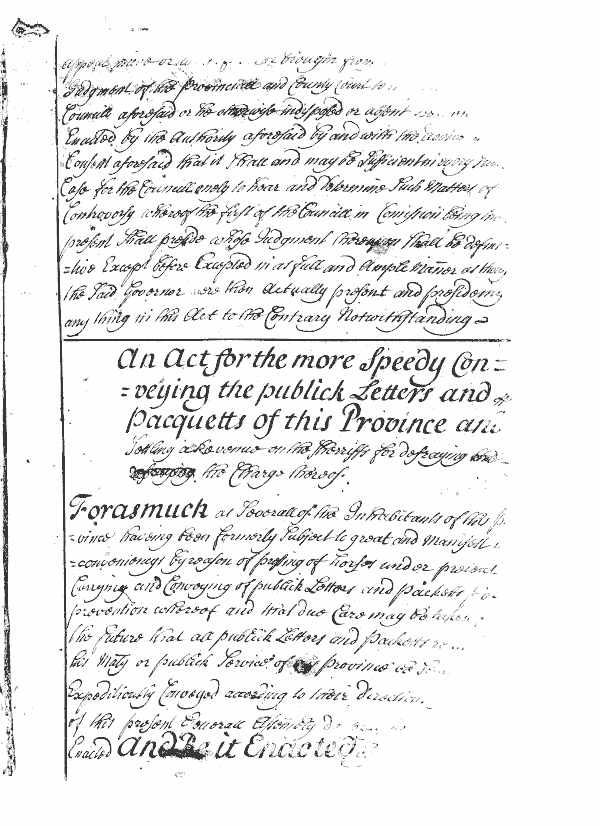 Judgment of the Provinciall and County Court
Councill aforesaid or be otherwise indisposed or
Enacted by the Authority aforesaid by and with the
Consent aforesaid that it Shall and may be Sufficient in every
Case for the Councill onely to hear and Determine Such Matters of
Controversy whereof the first of the Councill in Comission being
present Shall preside whose Judgment thereupon Shall be defini=
=tive Except before Excepted in as full and Ample Manner as
the Said Governor were then Actually present and presideing
any thing in this Act to the Contrary Notwithstanding
An Act for the more Speedy Con=
=veying the publick Letters and
Pacquetts of this Province and
Setling a Revenue on the Sherriffs for defraying
the Charge thereof.
Forasmuch as Severall of the Inhabitants of this
=vince having been formerly Subject to great and Manifest
=conveniencys by reason of pressing of horses under pretence
Carrying and Conveying of publick Letters and packetts
prevention whereof and that due Care may be taken
the future that all publick Letters and packetts
his Maty or publick Service of Province
Expeditiously Conveyed according to their direction
of this present Generall Assembly
Enacted And Be it Enacted